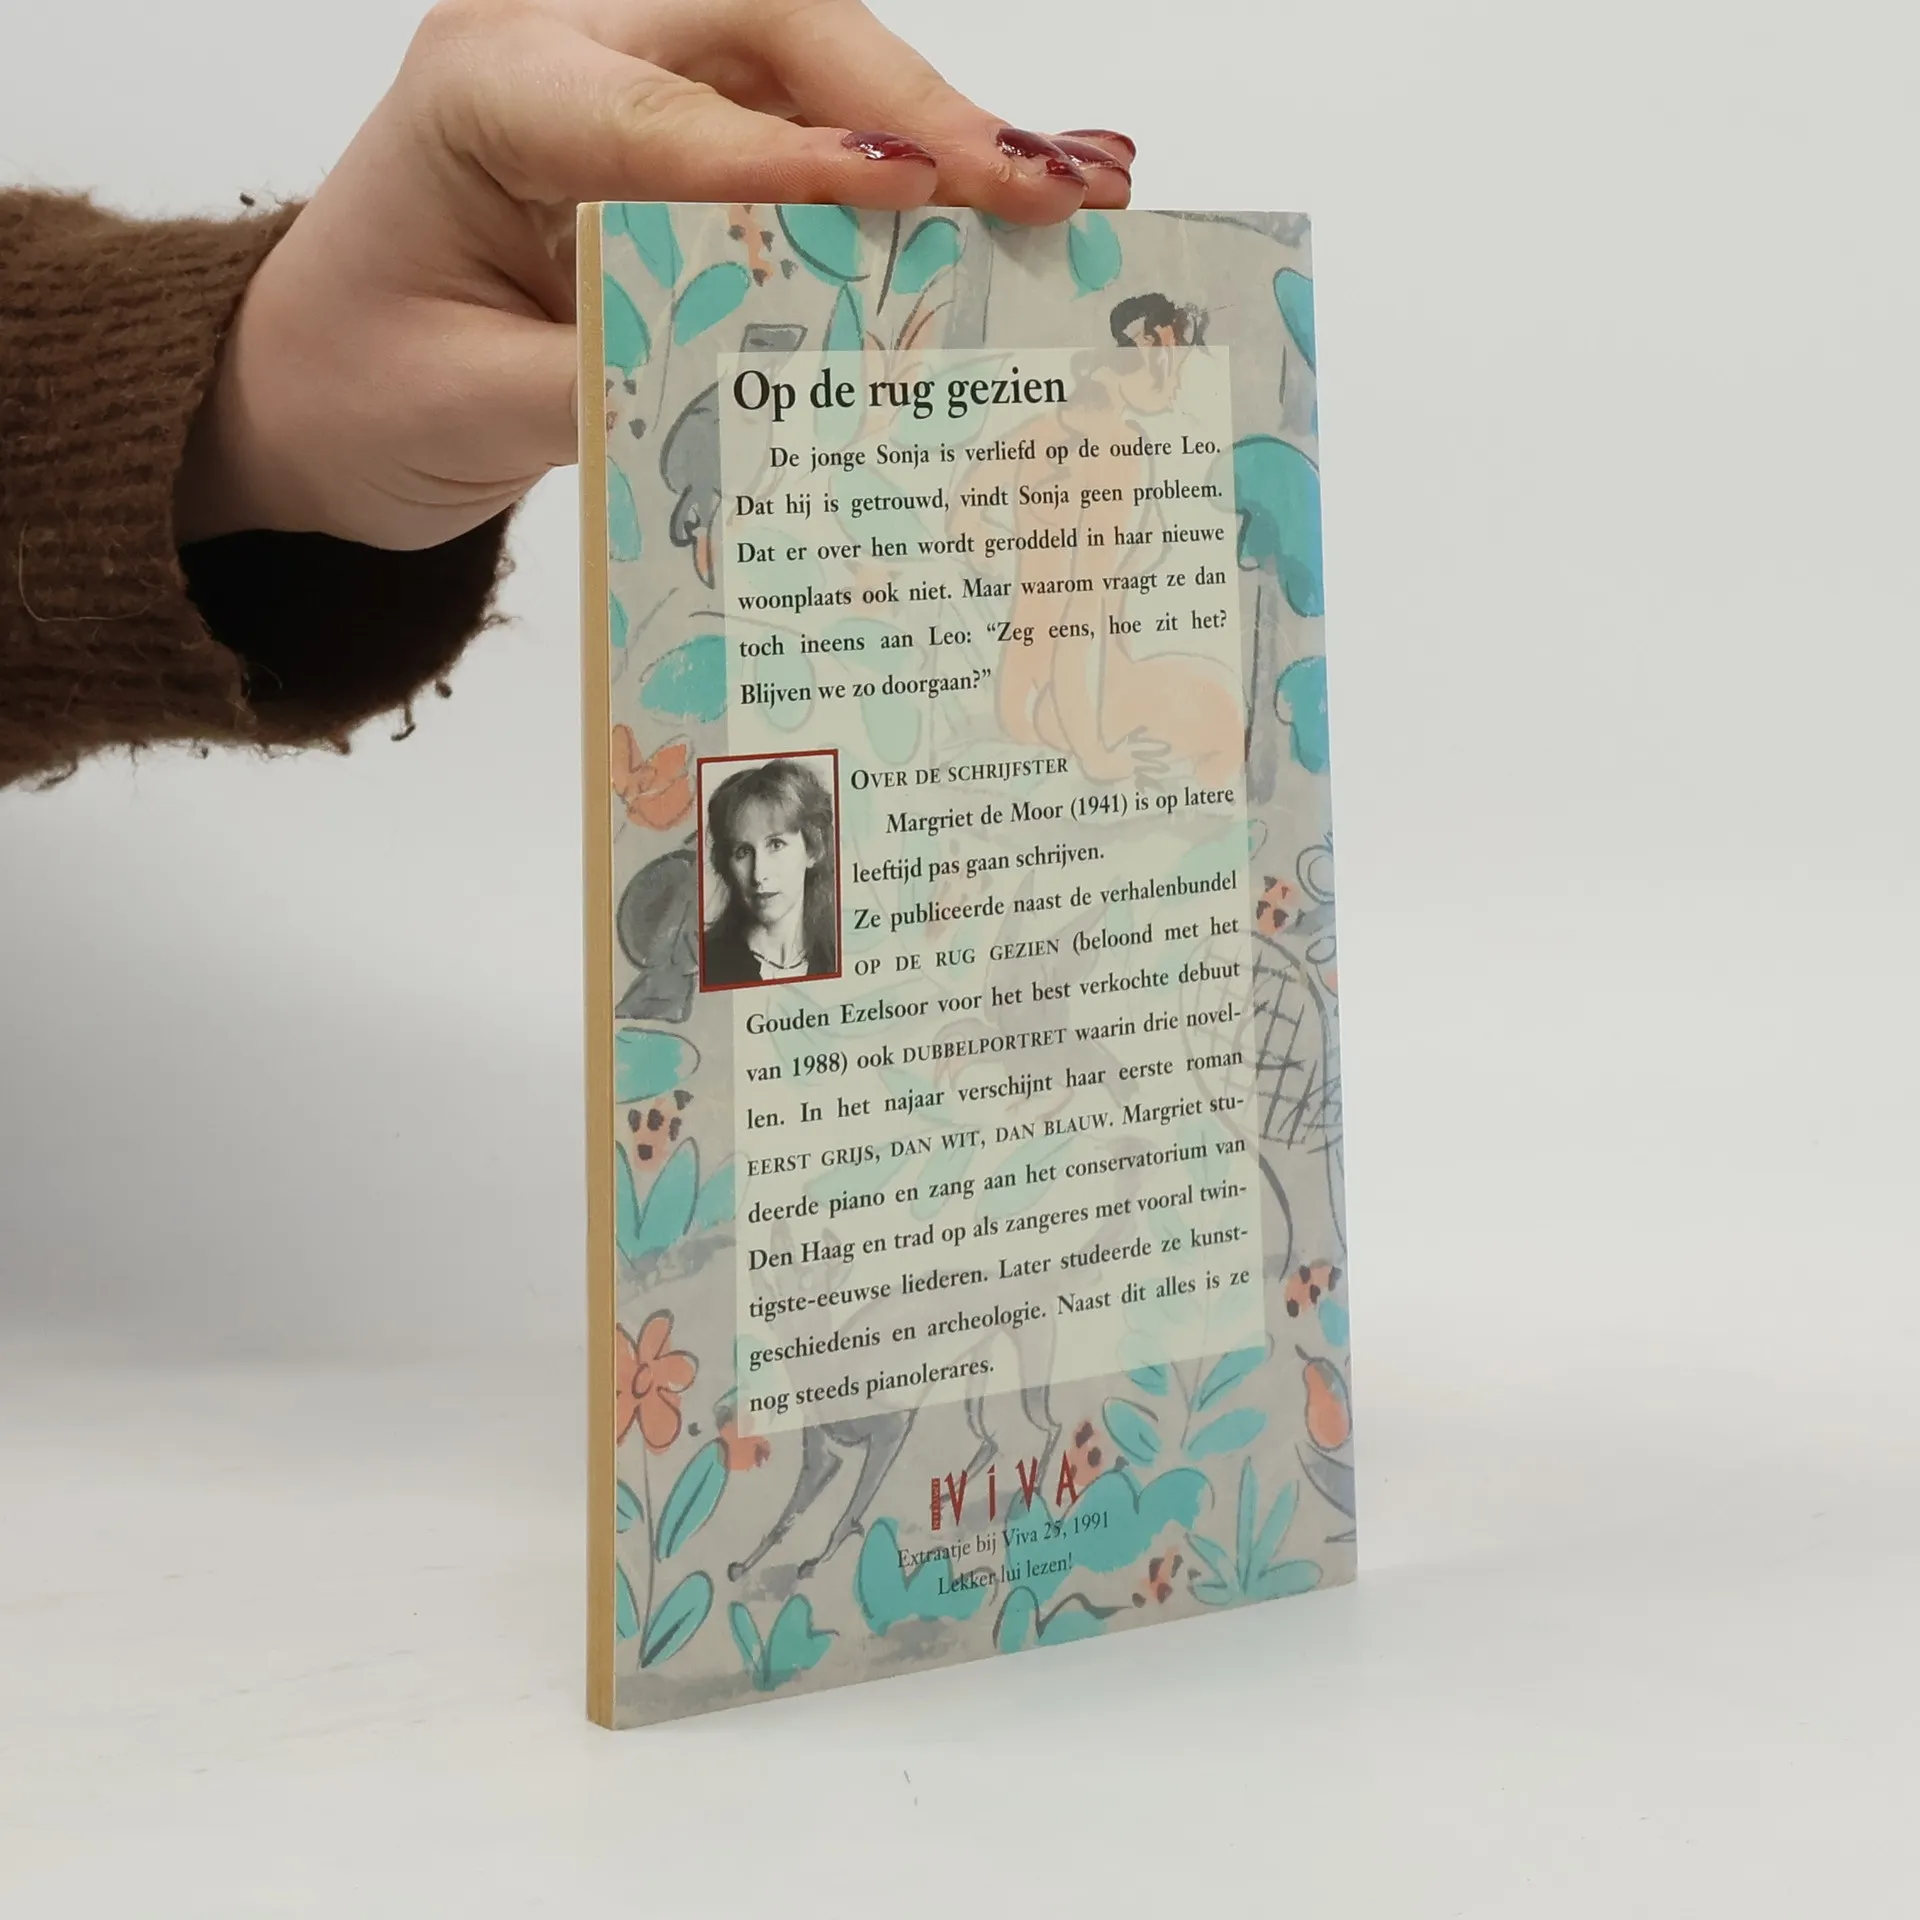 Op de rug gezien
De jonge Sonja is verliefd op de oudere Leo.
Dat hij is getrouwd, vindt Sonja geen probleem.
Dat er over hen wordt geroddeld in haar nieuwe
woonplaats ook niet. Maar waarom vraagt ze dan
toch ineens aan Leo: “Zeg eens, hoe zit het?
Blijven we zo doorgaan?”
OVER DE SCHRIJFSTER
Margriet de Moor (1941) is op latere
leeftijd pas gaan schrijven.
Ze publiceerde naast de verhalenbundel
OP DE RUG GEZIEN (beloond met het
Gouden Ezelsoor voor het best verkochte debuut
van 1988) ook DUBBELPORTRET waarin drie novel-
len. In het najaar verschijnt haar eerste roman
EERST GRIJS, DAN WIT, DAN BLAUW. Margriet stu-
deerde piano en zang aan het conservatorium van
Den Haag en trad op als zangeres met vooral twin-
tigste-eeuwse liederen. Later studeerde ze kunst-
geschiedenis en archeologie. Naast dit alles is ze
nog steeds pianolerares.
ViVA
Extraatje bij Viva 25, 1991
Lekker lui lezen!